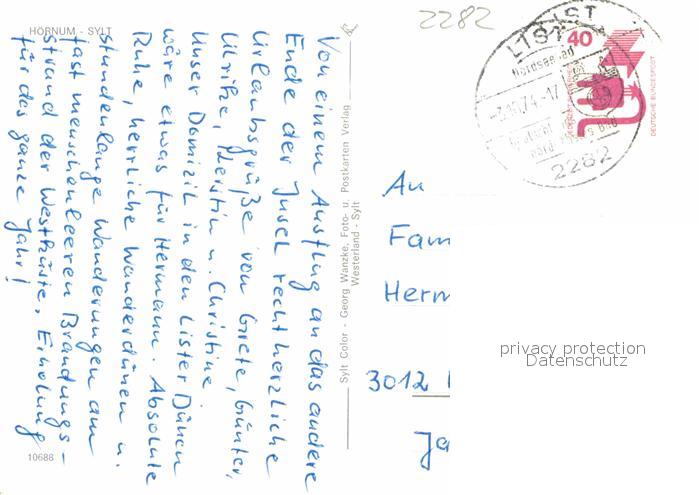 HÖRNUM - SYLT
Von einem Ausflug an das andere
Ende der Insel recht herzliche
Urlaubsgrüße von Grete, Günter,
Ulrike, Kerstin u. Christine.
Unser Domizil in den Lister Dünen
wäre etwas für Hermann. Absolute
Ruhe, herrliche Wanderdünen u.
stundenlange Wanderungen am
fast menschenleeren Brandungs-
strand der Westküste, Erholung
für das ganze Jahr!
10688
Sylt Color - Georg Wanzke, Foto- u. Postkarten Verlag
Westerland - Sylt
2282
LIST
LIST
Nordseebad
74-17
2282
40
DEUTSCHE BUNDESPOST
An
Fam
Herm
3012
Ja
privacy protection
Datenschutz